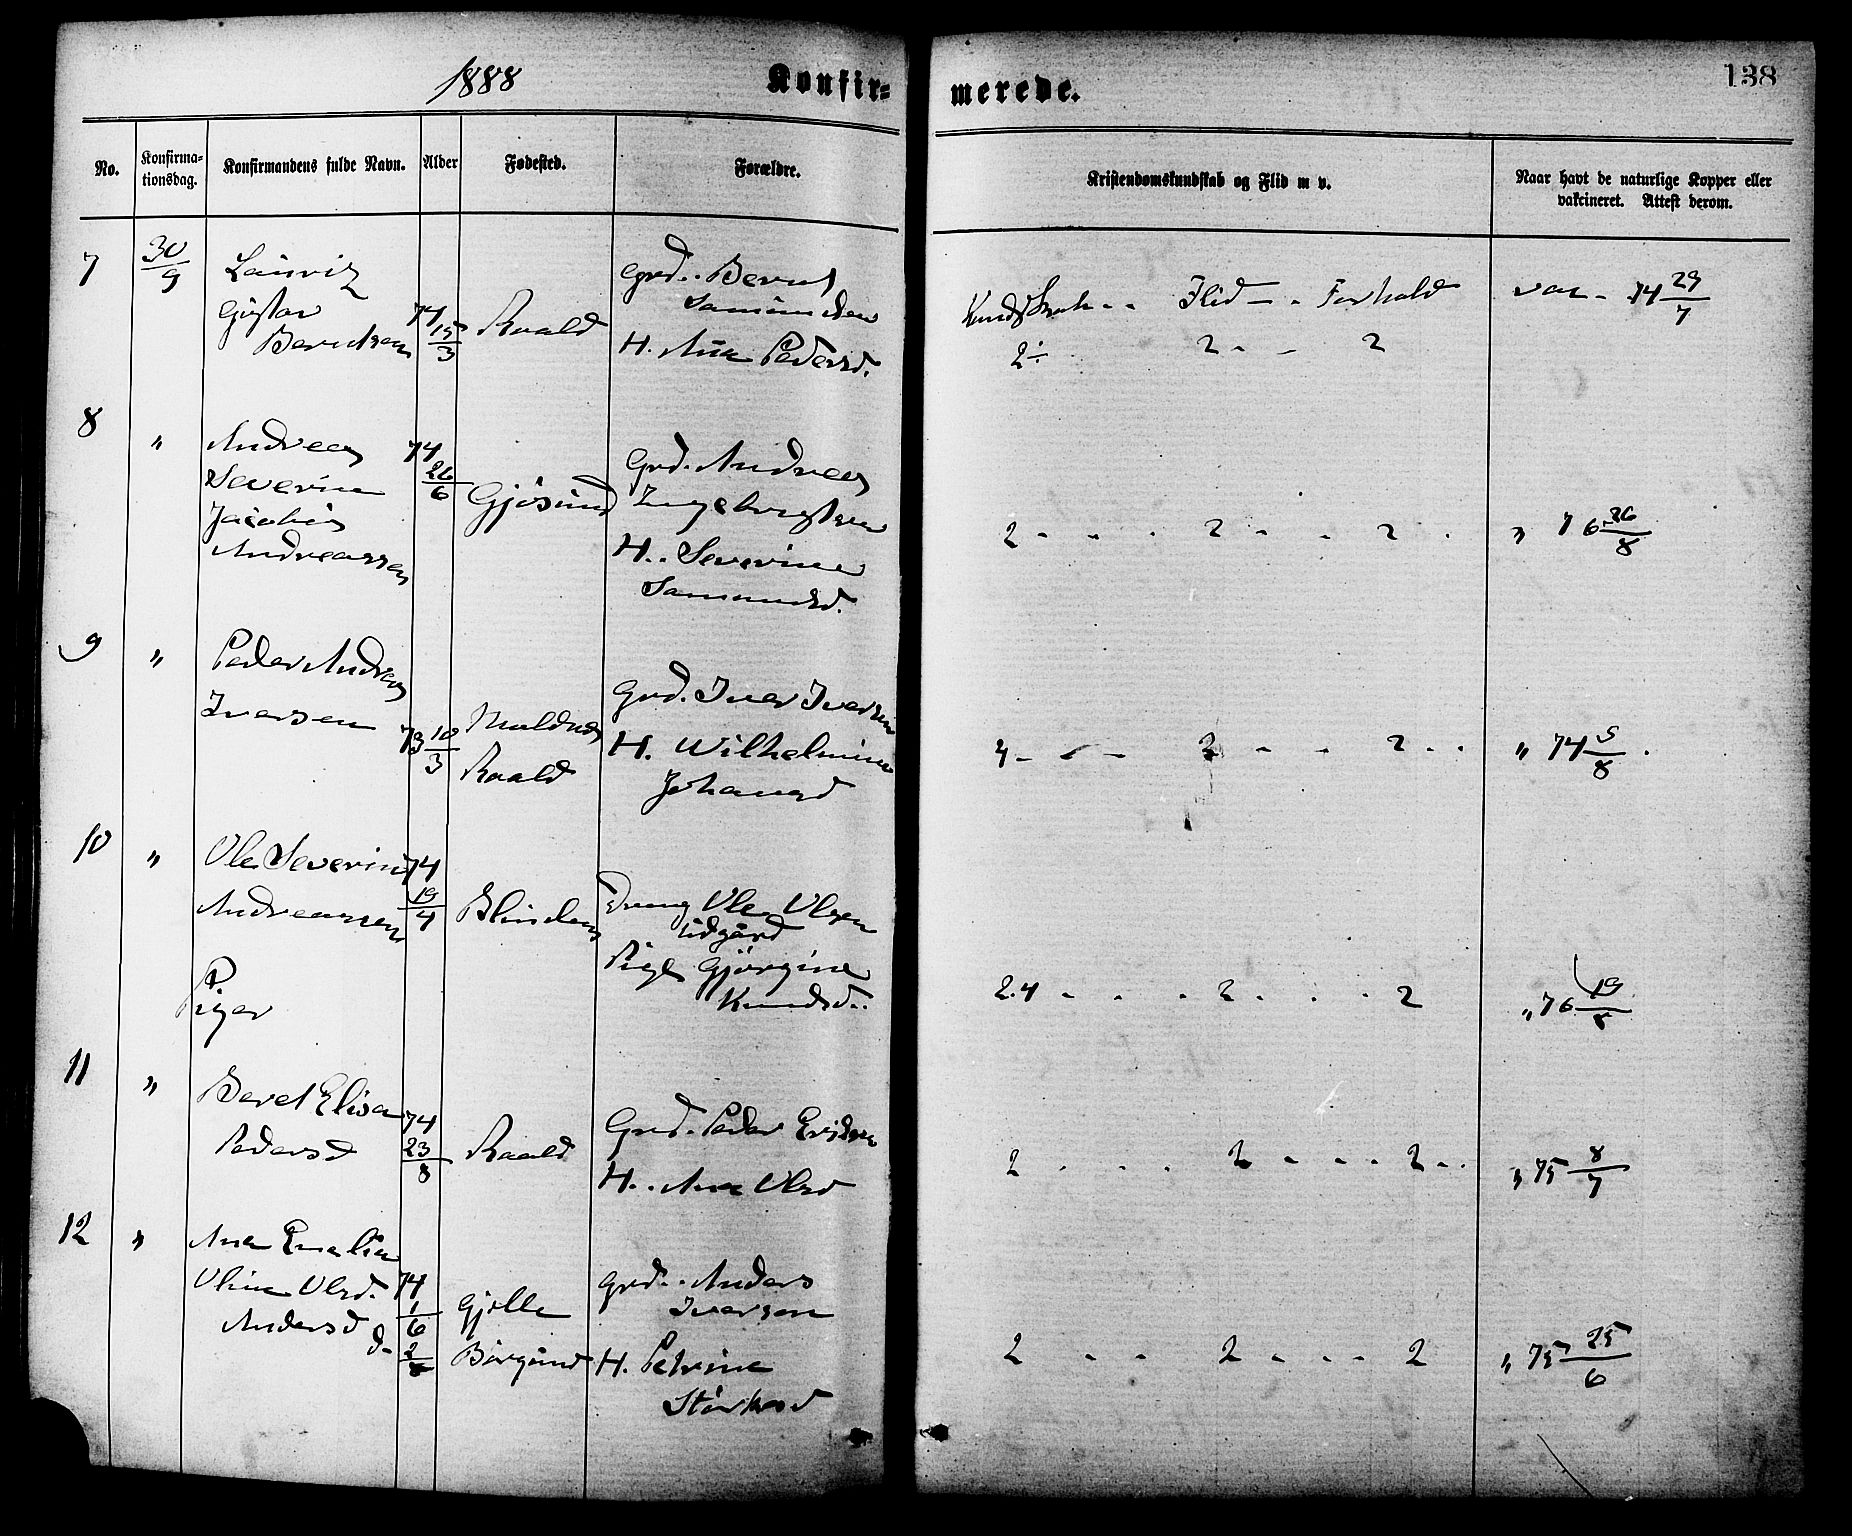 1888
Konfir=
merede.
138
No.
Konfirma-
tionsdag.
Konfirmandens fulde Navn.
Alder
Fødested.
Forældre.
Kristendomskundskab og Flid m v.
Naar havt de naturlige Kopper eller
vakcineret. Attest derom.
7
30/9
Lauritz
Gustav
Berntsen
74
15/3
Roald
Grd. Bernt
H. Ana Pedersd.
Kundskab - - Flid - - Forhold
2÷ 2 - - 2
vac. 74 29/7
8
"
Andreas
Severin
Jacobus
Andreassen
74
26/6
Gjøsund
Grd. Andreas
Ingebrigtsen
H. Severine
Samundsd.
2 - - - 2 - - 2 -
" 76 26/8
9
"
Peder Andreas
Iversen
73 10/3
Moldnes
Roald
Grd. Iver Iversen
H. Wilhelmine
Johansd
4 - - - 2 - - 2 - -
" 74 5/8
10
"
Ole Severin
Andreassen
74
19/4
Blindem
Dreng Ole Olsen
Udgård
Pige Gjørgine
Knudsd.
2.4 - - - 2 - - - 2
" 76 19/8
Piger
11
"
Beret Elisa
Pedersd
74
23/8
Roald
Grd. Peder Eriksen
H. Ana Olsd
2 - - - 2 - - - 2 - -
" 75 8/7
12
"
Ana Emalia
Oline Olsd.
Andersd
74
1/6
d. 2
Gjelle
Borgund
Grd. Anders
Iversen
H. Petrine
2 - - 2 - - - 2
" 75 25/6